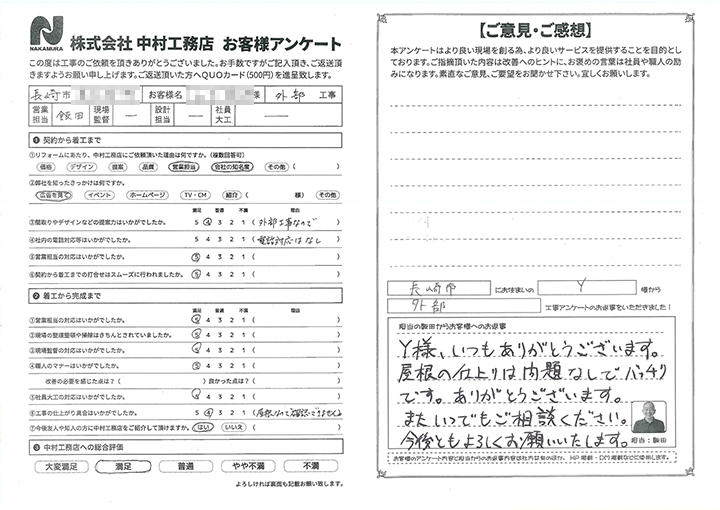 NAKAMURA
株式会社 中村工務店 お客様アンケート
この度は工事のご依頼を頂きありがとうございました。お手数ですがご記入頂き、ご返送頂
きますようお願い申し上げます。ご返送頂いた方へQUOカード(500円)を進呈致します。
長崎市 お客様名 様 外部 工事
営業担当 飯田 現場監督 ― 設計担当 ― 社員大工 ―
❶ 契約から着工まで
①リフォームにあたり、中村工務店にご依頼頂いた理由は何ですか。(複数回答可)
価格 デザイン 提案 品質 営業担当 会社の知名度 その他 ( )
②弊社を知ったきっかけは何ですか。
広告を見て イベント ホームページ TV・CM 紹介 ( 様) その他
満足 普通 不満 理由
③間取りやデザインなどの提案力はいかがでしたか。 5 4 3 2 1 ( 外部工事なので )
④社内の電話対応等はいかがでしたか。 5 4 3 2 1 ( 電話対応はなし )
⑤営業担当の対応はいかがでしたか。 5 4 3 2 1 ( )
⑥契約から着工までの打合せはスムーズに行われましたか。 5 4 3 2 1 ( )
❷ 着工から完成まで
満足 普通 不満 理由
①営業担当の対応はいかがでしたか。 5 4 3 2 1 ( )
②現場の整理整頓や掃除はきちんとされていましたか。 5 4 3 2 1 ( )
③現場監督の対応はいかがでしたか。 5 4 3 2 1 ( )
④職人のマナーはいかがでしたか。 5 4 3 2 1 ( )
改善の必要を感じた点は?( )良かった点は?( )
⑤社員大工の対応はいかがでしたか。 5 4 3 2 1 ( )
⑥工事の仕上がり具合はいかがでしたか。 5 4 3 2 1 ( 屋根なので確認できません )
⑦今後友人や知人の方に中村工務店をご紹介して頂けますか。 はい いいえ ( )
❸ 中村工務店への総合評価
大変満足 満足 普通 やや不満 不満
よろしければ裏面も記載お願い致します。
【ご意見・ご感想】
本アンケートはより良い現場を創る為、より良いサービスを提供することを目的とし
ております。ご指摘頂いた内容は改善へのヒントに、お褒めの言葉は社員や職人の励
みになります。素直なご意見、ご要望をお聞かせ下さい。宜しくお願いします。
長崎市 にお住まいの Y 様から
外部 工事アンケートのお返事をいただきました!
担当の飯田からお客様へのお返事
Y様、いつもありがとうございます。
屋根の仕上りは問題なしでバッチリ
です。ありがとうございます。
またいつでもご相談ください。
今後ともよろしくお願いいたします。
担当:飯田
お客様のアンケート内容と担当からのお返事内容は社内共有のほか、HP掲載・DM掲載などに使用します。